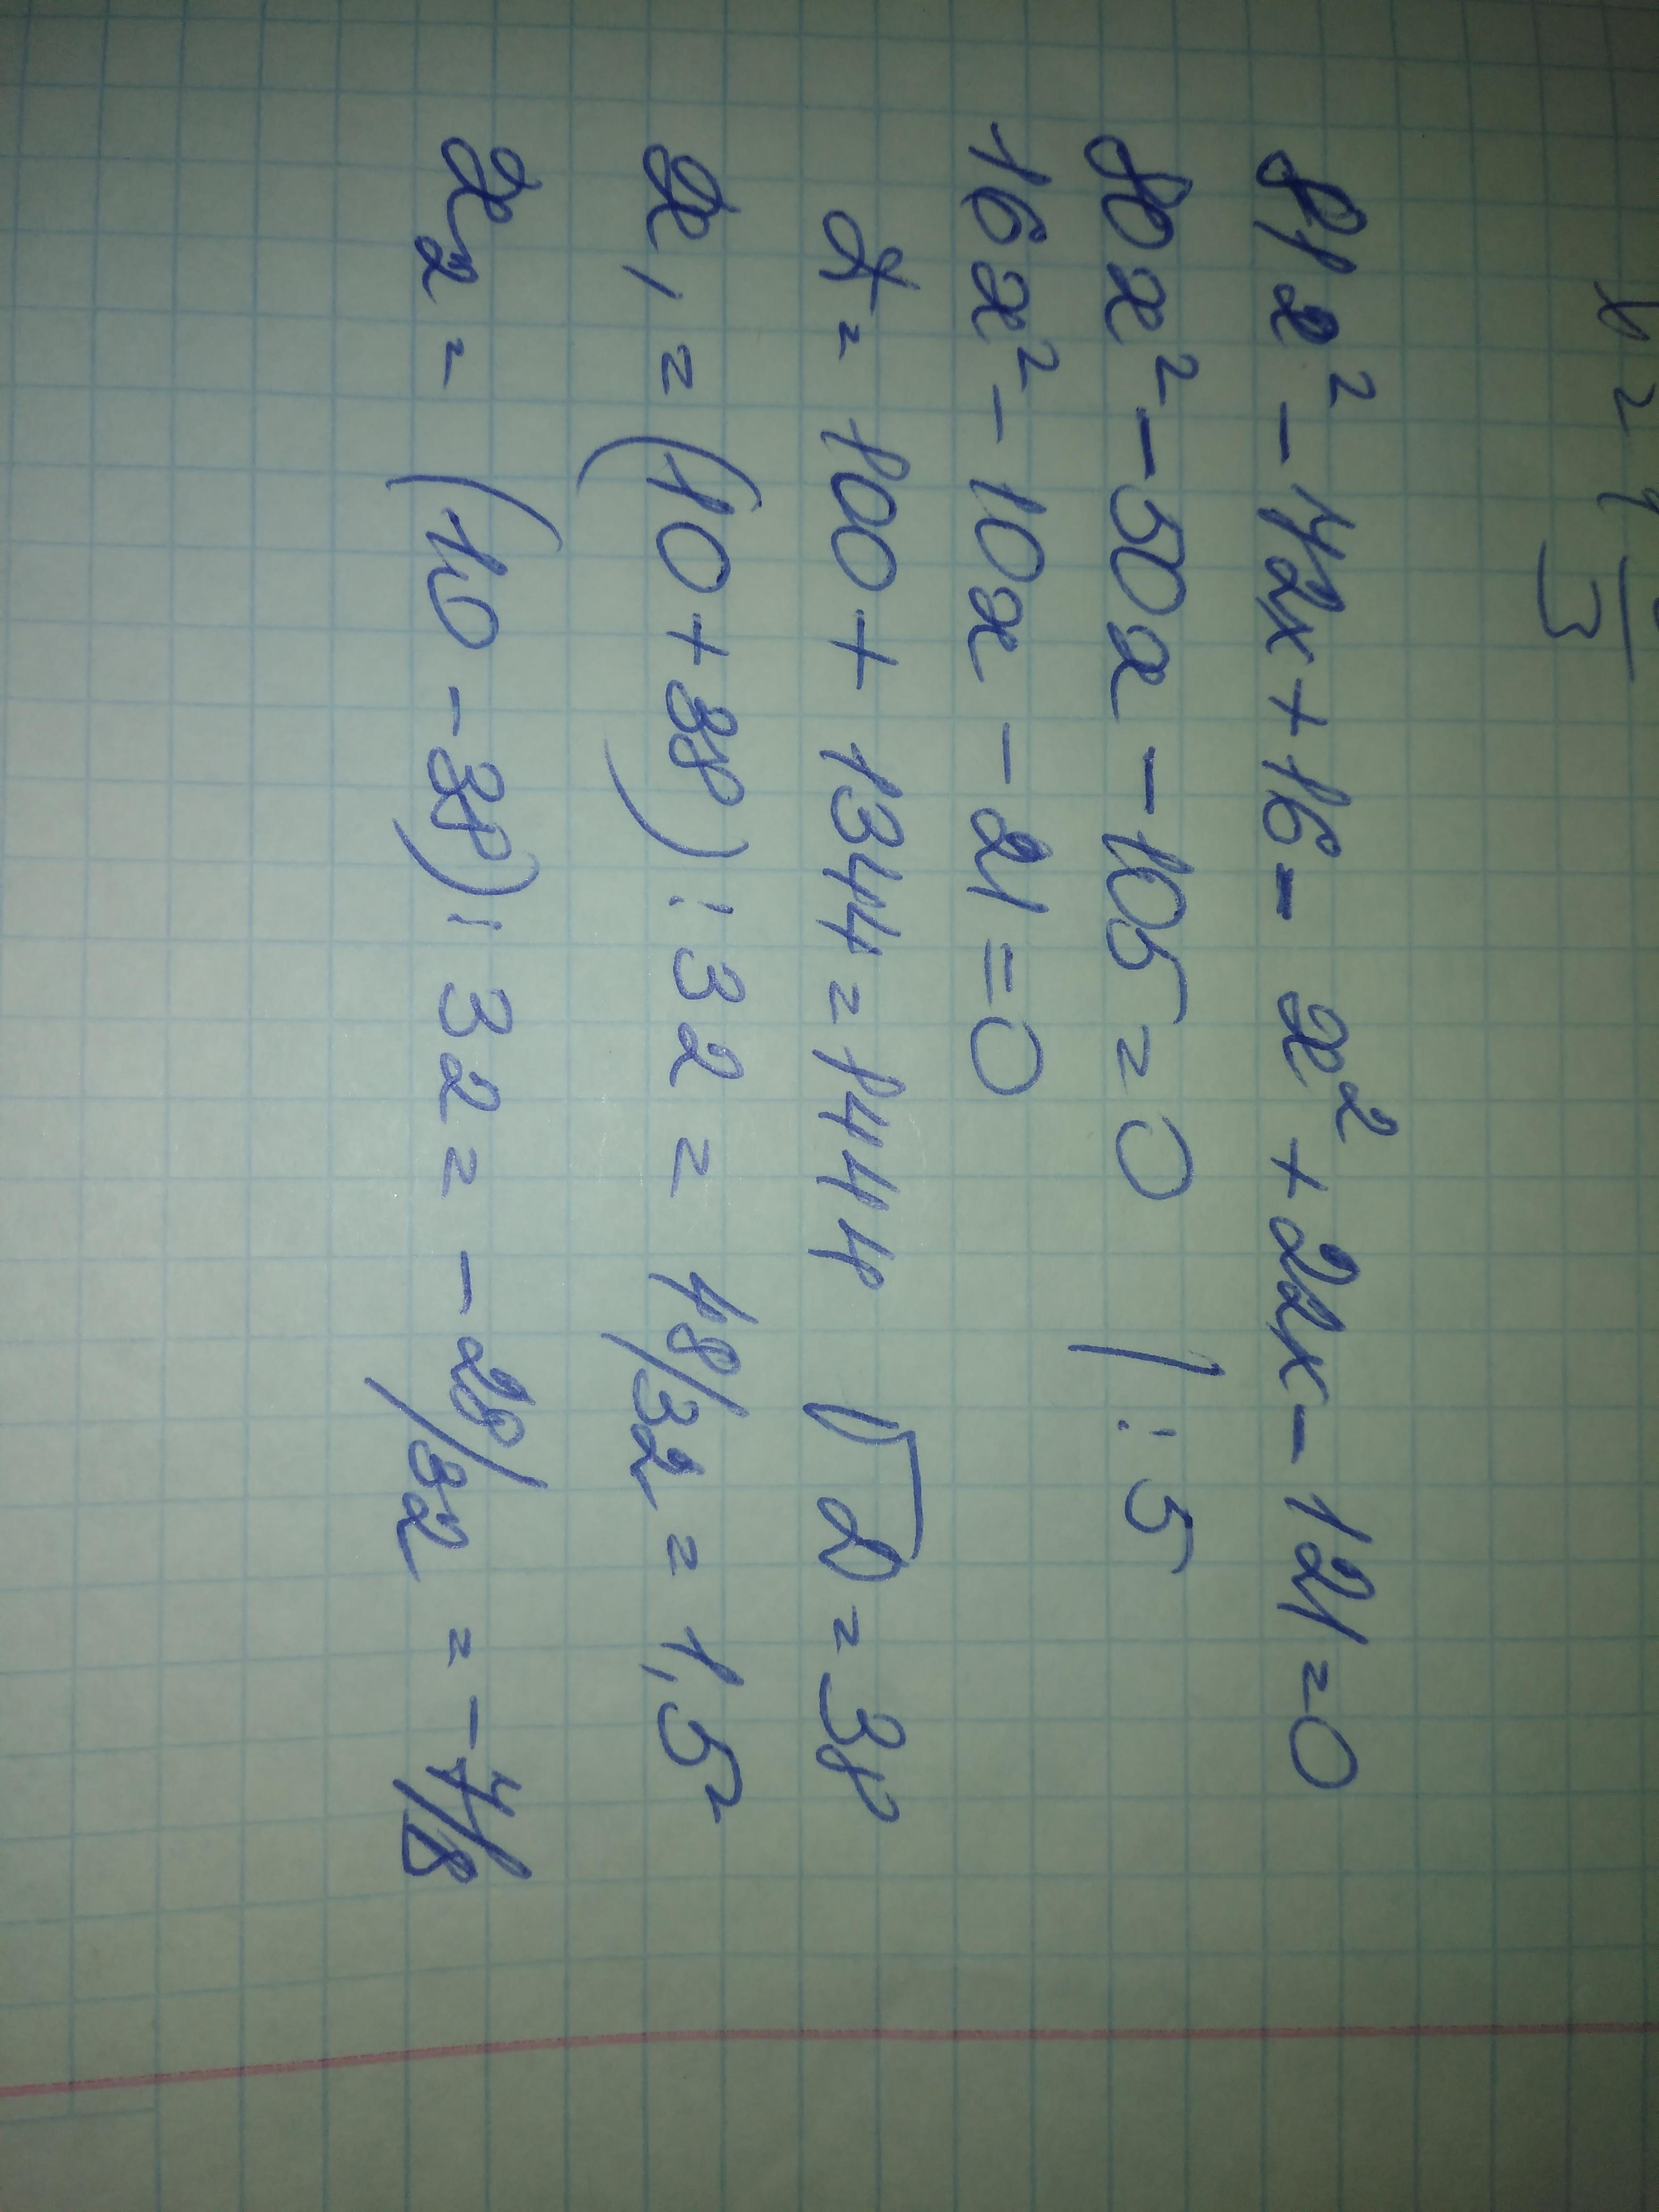 81x² - 72x + 16 - x² + 22x - 121 = 0
80x² - 50x - 105 = 0 | : 5
16x² - 10x - 21 = 0
D = 100 + 1344 = 1444 √D = 38
x₁ = (10 + 38) : 32 = 48/32 = 1,5
x₂ = (10 - 38) : 32 = -28/32 = -7/8